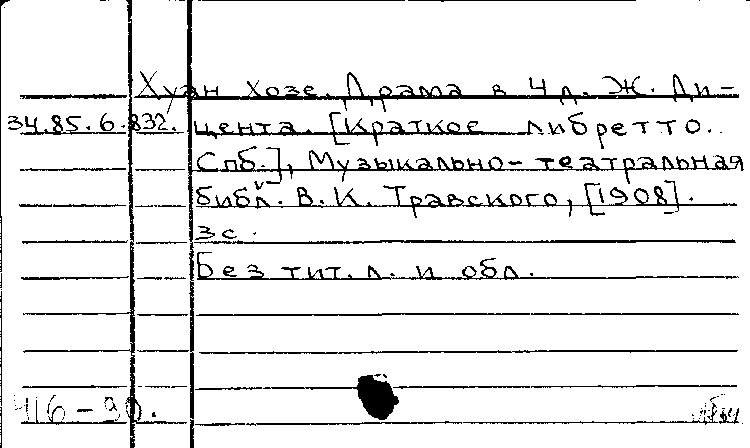 Хуан Хозе. Драма в 4 д. Ж. Ди-
34.85.6.832. цента. [Краткое либретто.
Спб.], Музыкально-театральная
библ. В. К. Травского, [1908].
3с.
Без тит. л. и обл.
416-90.